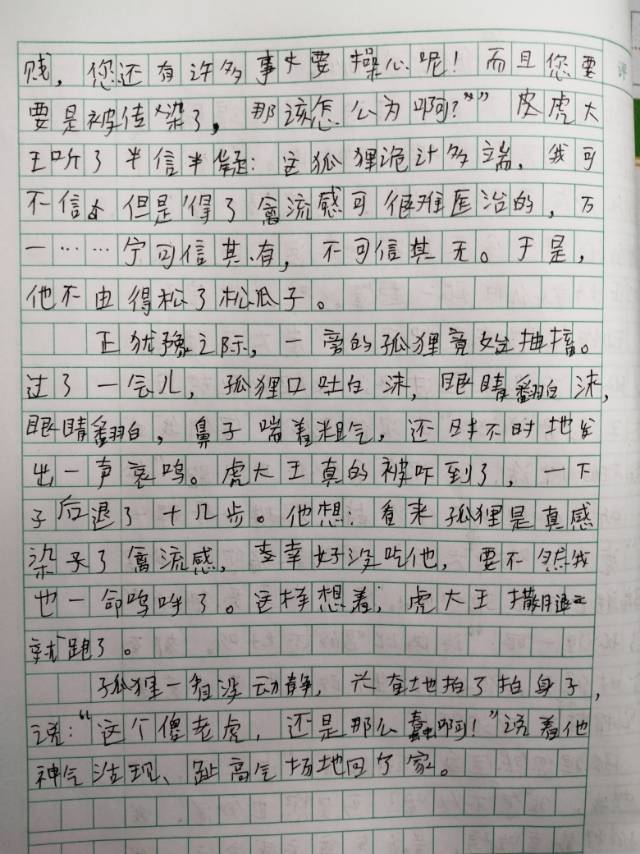 贱，您还有许多事大要操心呢！而且您要
要是被传染了，那该怎么为啊？”皮虎大
王听了半信半疑：这狐狸诡计多端，我可
不信，但是得了禽流感可很难医治的，万
一……宁可信其有，不可信其无。于是，
他不由得松了松爪子。
正犹豫之际，一旁的狐狸竟始抽搐。
过了一会儿，狐狸口吐白沫，眼睛翻白沫，
眼睛翻白，鼻子喘着粗气，还时不时地发
出一声哀鸣。虎大王真的被吓到了，一下
子后退了十几步。他想：看来狐狸是真感
染了禽流感，幸好没吃他，要不然我
也一命呜呼了。这样想着，虎大王撒腿
就跑了。
狐狸一看没动静，兴奋地拍了拍身子，
说：“这个傻老虎，还是那么蠢啊！”说着他
神气活现、趾高气扬地回了家。